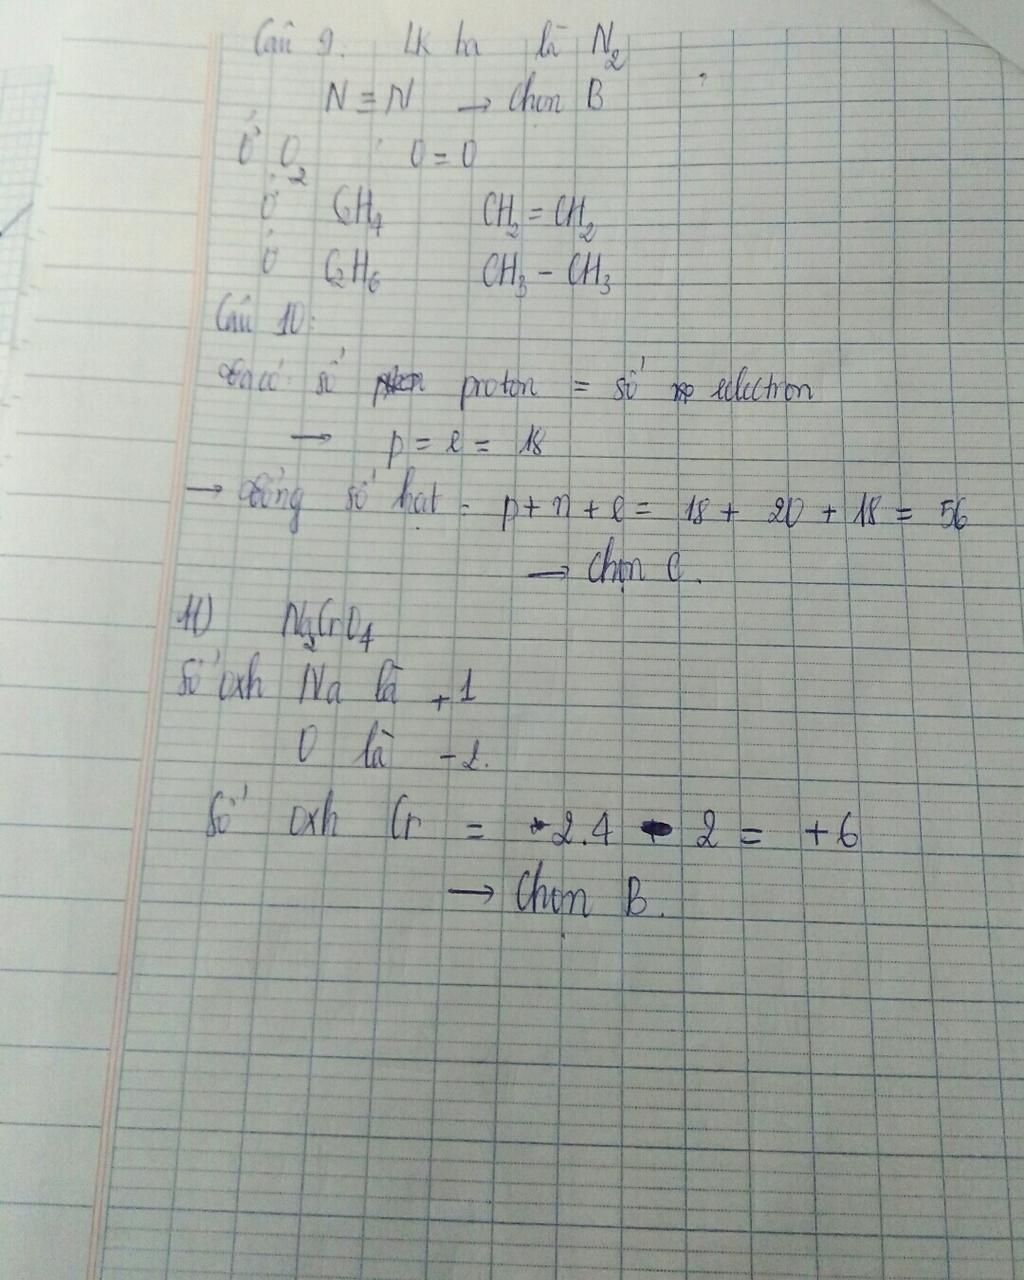 Câu 9. LK ba là N₂
N ≡ N → Chọn B
Ở O₂ O = O
Ở C₂H₄ CH₂ = CH₂
Ở C₂H₆ CH₃ - CH₃
Câu 10:
Ta có số proton = số electron
→ p = e = 18
→ Tổng số hạt = p + n + e = 18 + 20 + 18 = 56
→ Chọn C.
11) Na₂CrO₄
Số oxh Na là +1
O là -2.
Số oxh Cr = 2.4 - 2 = +6
→ Chọn B.